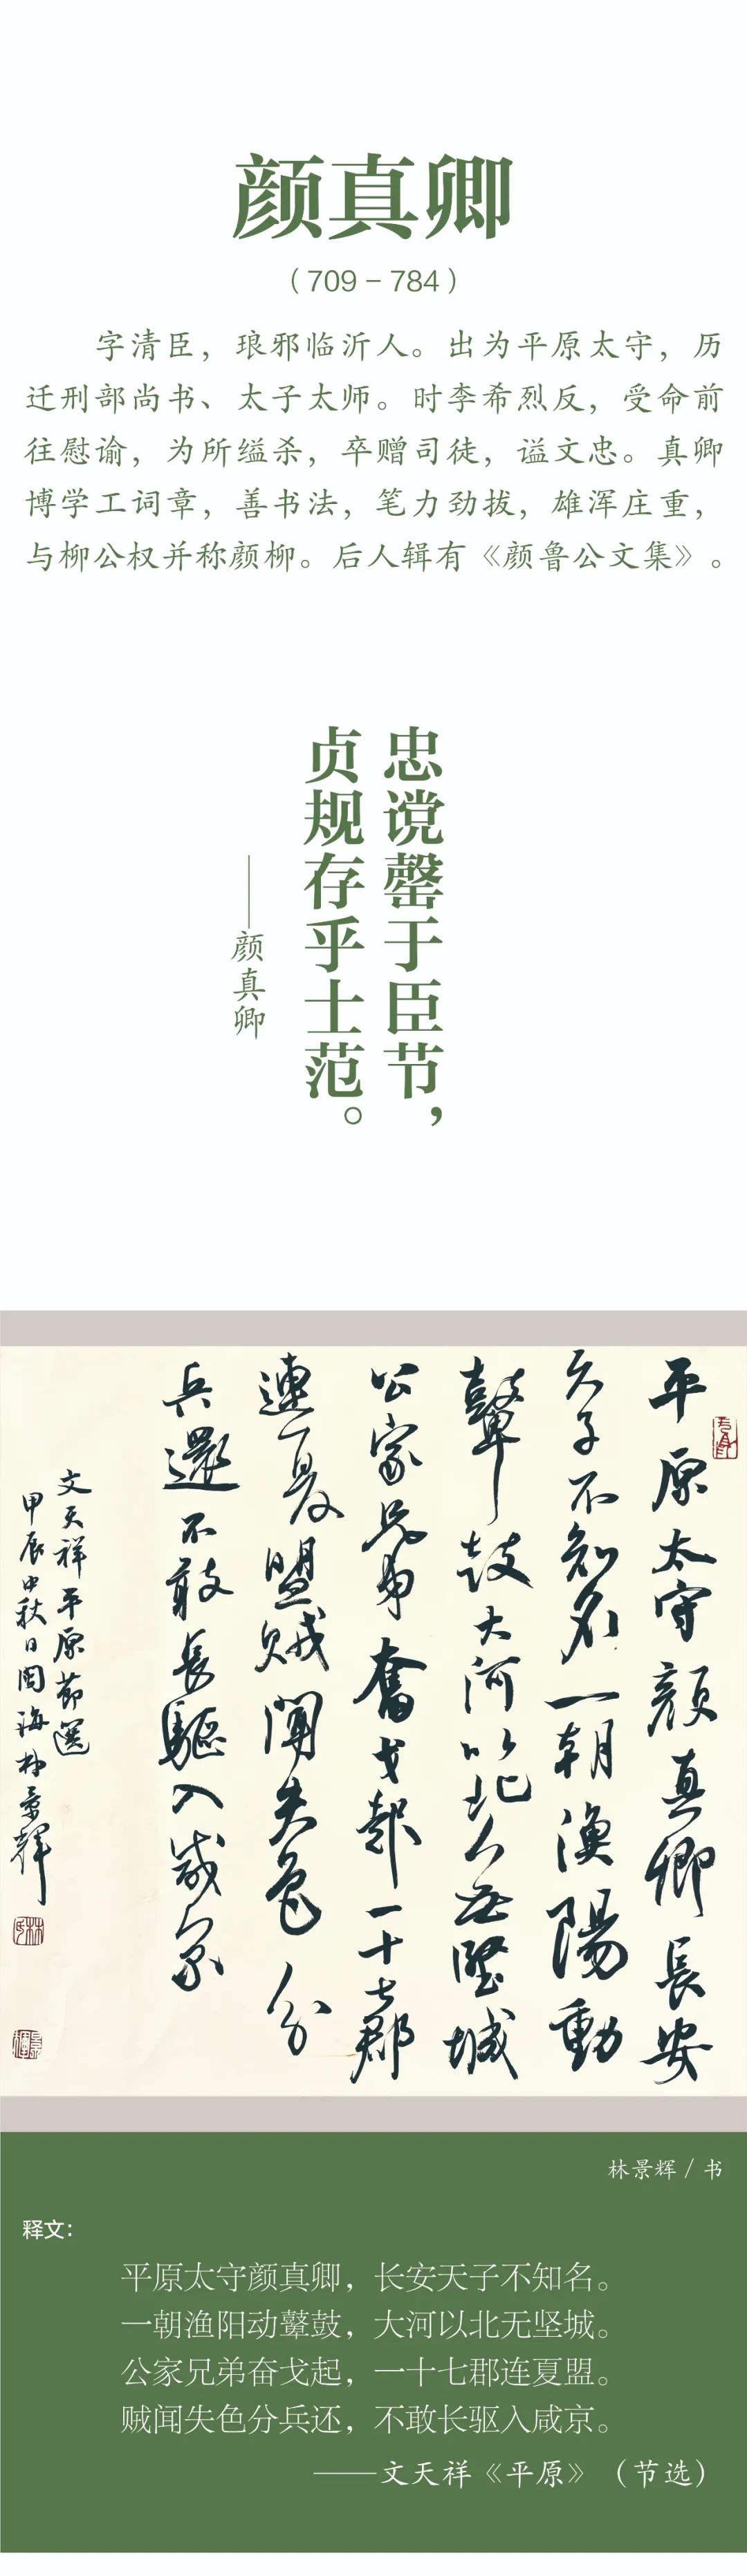 颜真卿
（709－784）
字清臣，琅邪临沂人。出为平原太守，历
迁刑部尚书、太子太师。时李希烈反，受命前
往慰谕，为所缢杀，卒赠司徒，谥文忠。真卿
博学工词章，善书法，笔力劲拔，雄浑庄重，
与柳公权并称颜柳。后人辑有《颜鲁公文集》。
忠谠罄于臣节，
贞规存乎士范。
——颜真卿
平原太守颜真卿長安
天子不知名一朝渔陽動
鼙鼓大河以北人無堅城
公家兄弟奮戈起一十七郡
連夏盟賊聞失色分
兵還不敢長驅入咸京
文天祥平原節選
甲辰中秋日閩海林景輝
林景辉／书
释文：
平原太守颜真卿，长安天子不知名。
一朝渔阳动鼙鼓，大河以北无坚城。
公家兄弟奋戈起，一十七郡连夏盟。
贼闻失色分兵还，不敢长驱入咸京。
——文天祥《平原》（节选）